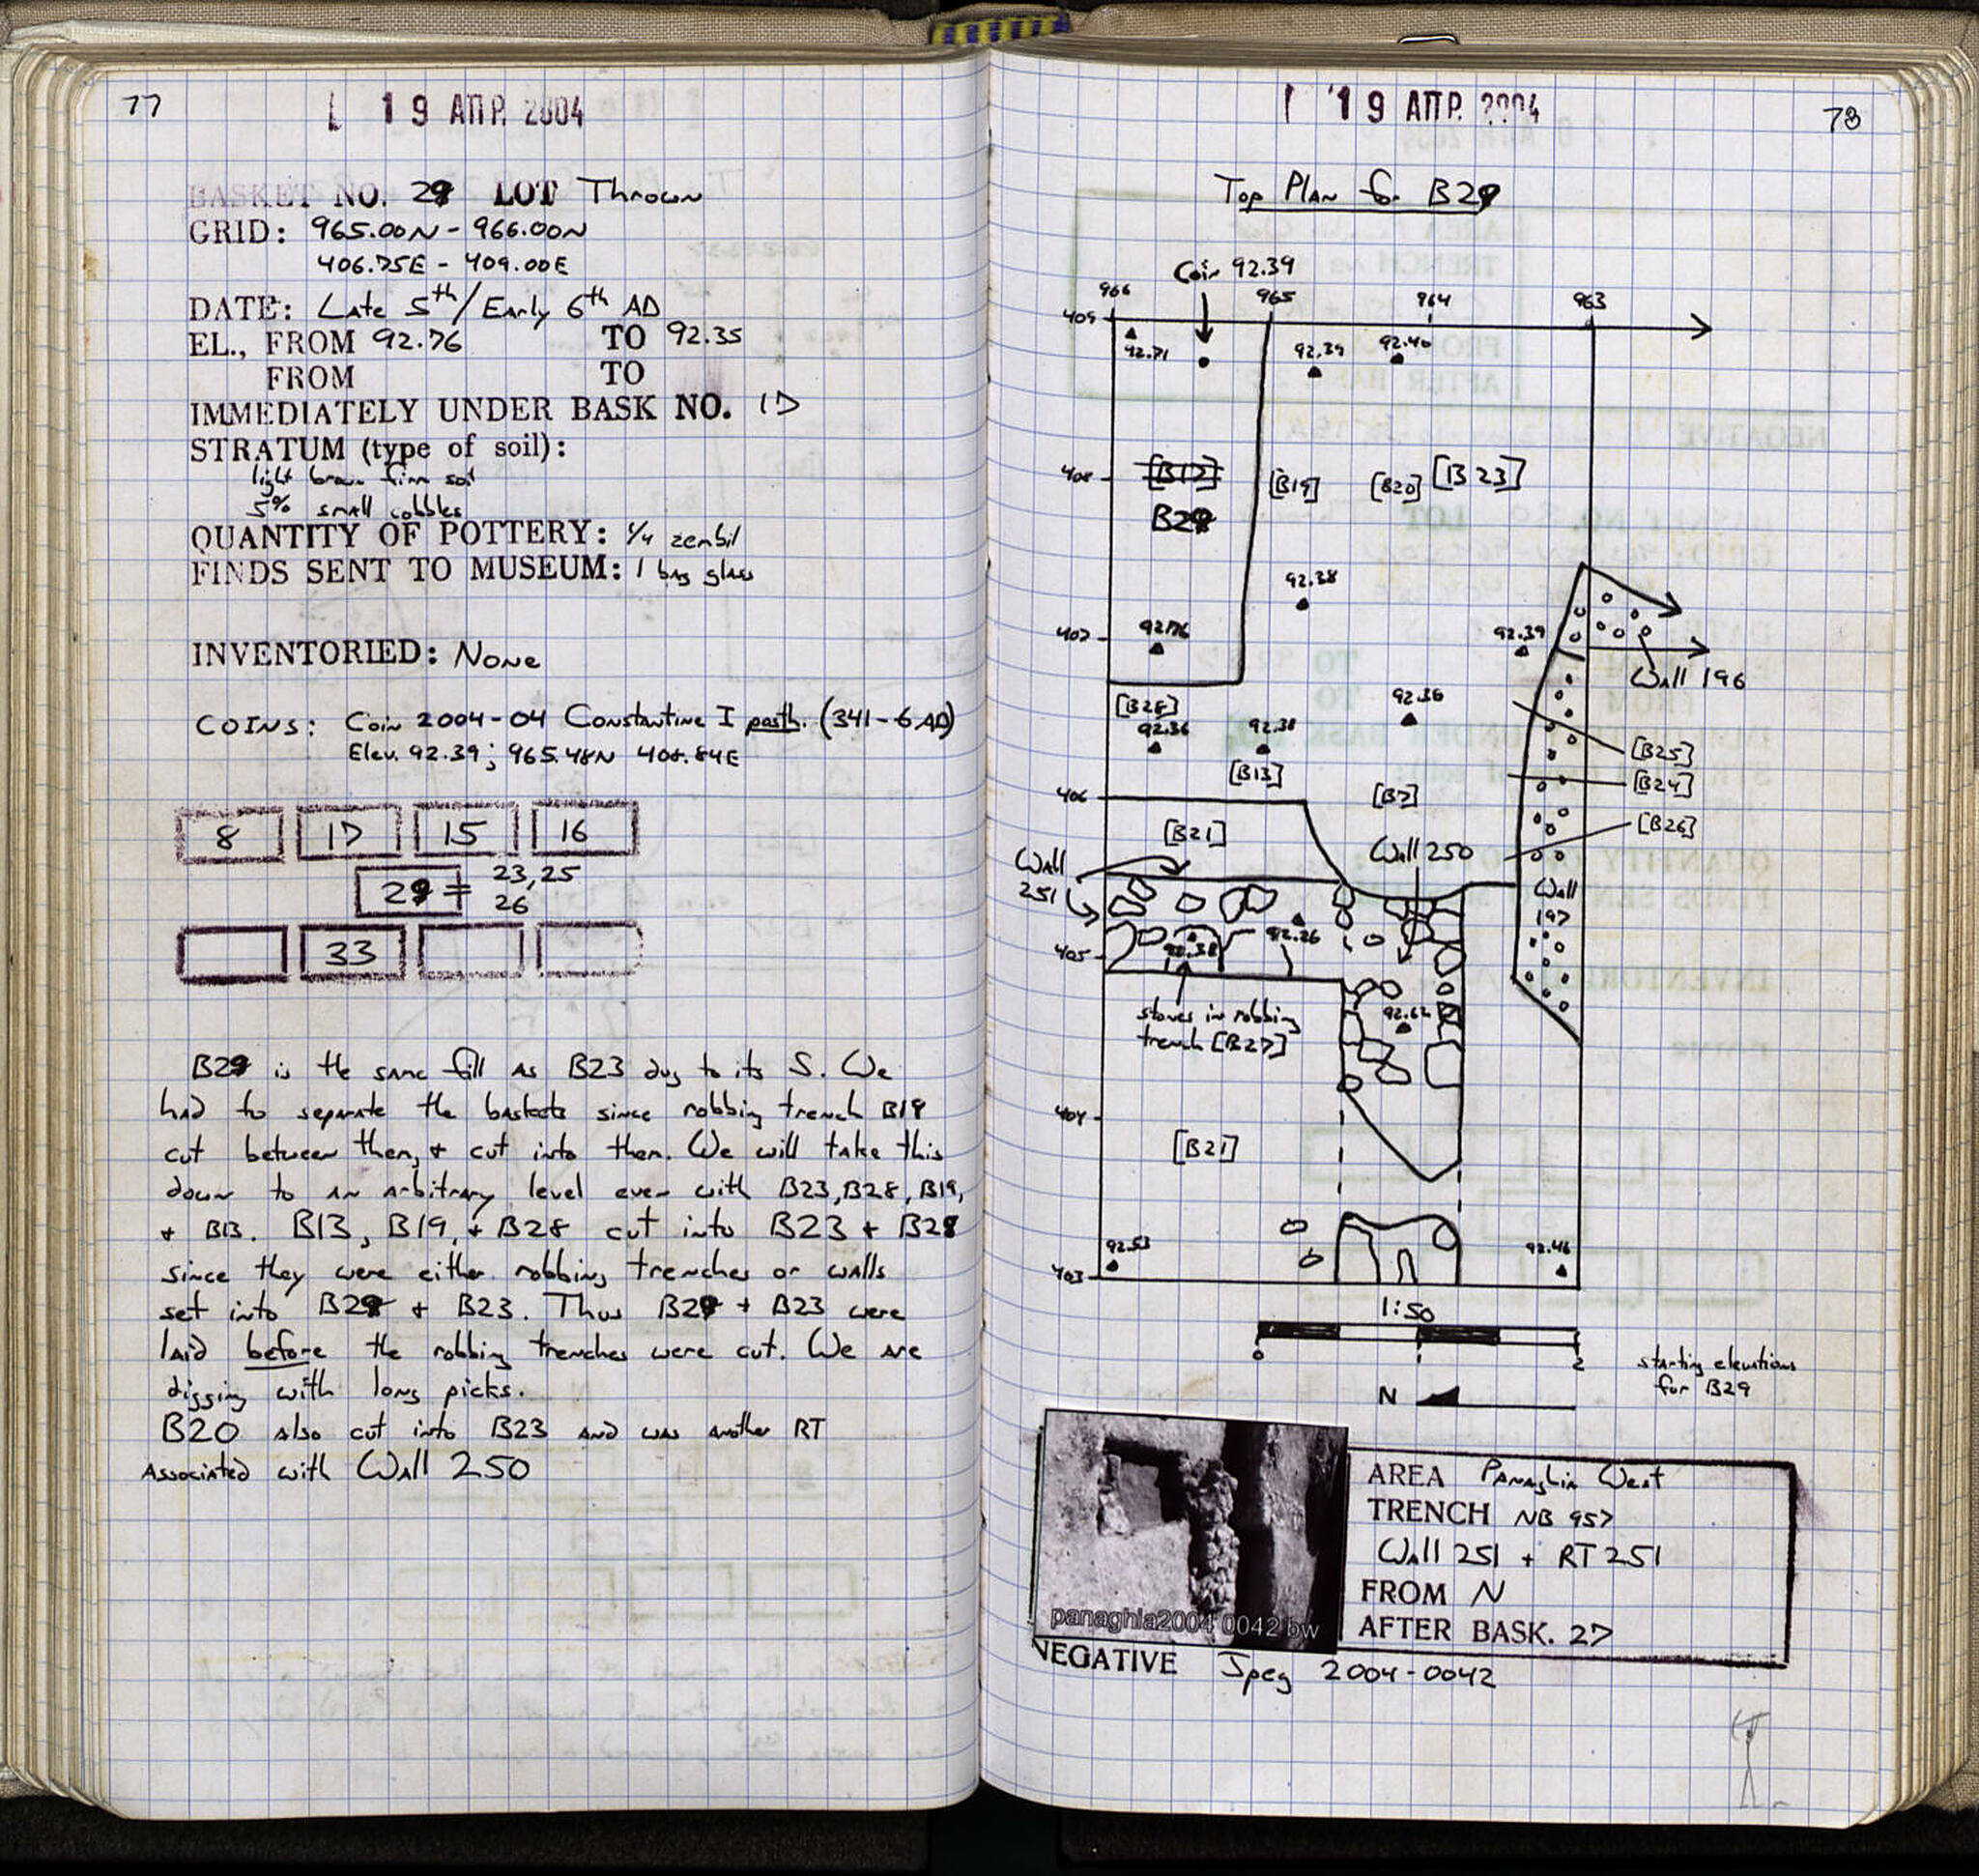 77
19 ΑΠΡ. 2004
BASKET NO. 29 LOT Thrown
GRID: 965.00N - 966.00N
406.75E - 409.00E
DATE: Late 5th/Early 6th AD
EL., FROM 92.76 TO 92.35
FROM TO
IMMEDIATELY UNDER BASK NO. 17
STRATUM (type of soil):
light brown firm soil
5% small cobbles
QUANTITY OF POTTERY: 1/4 zembil
FINDS SENT TO MUSEUM: 1 bag glass
INVENTORIED: None
COINS: Coin 2004-04 Constantine I posth. (341-6 AD)
Elev. 92.39; 965.48N 408.84E
8 17 15 16
29 = 23, 25
26
33
B29 is the same fill as B23 dug to its S. We
had to separate the baskets since robbing trench B19
cut between them, + cut into them. We will take this
down to an arbitrary level even with B23, B28, B19,
+ B13. B13, B19, + B28 cut into B23 + B29
since they were either robbing trenches or walls
set into B29 + B23. Thus B29 + B23 were
laid before the robbing trenches were cut. We are
digging with long picks.
B20 also cut into B23 and was another RT
associated with Wall 250
19 ΑΠΡ. 2004
78
Top Plan for B29
Coin 92.39
966 965 964 963
409
92.71 92.39 92.40
408 [B17] [B19] [B20] [B23]
B29
92.38
407 92.76 92.39
Wall 196
[B28] 92.36
92.36 92.38
[B25]
[B13] [B24]
406 [B7]
[B21] [B26]
Wall 250
Wall
251
Wall
197
405 92.38 92.26
stones in robbing
trench [B27]
92.62
404
[B21]
92.53 92.46
403
1:50
0 1 2
starting elevations
for B29
N
panaghia2004 0042 bw
AREA Panaghia West
TRENCH NB 957
Wall 251 + RT 251
FROM N
AFTER BASK. 27
NEGATIVE Jpeg 2004-0042